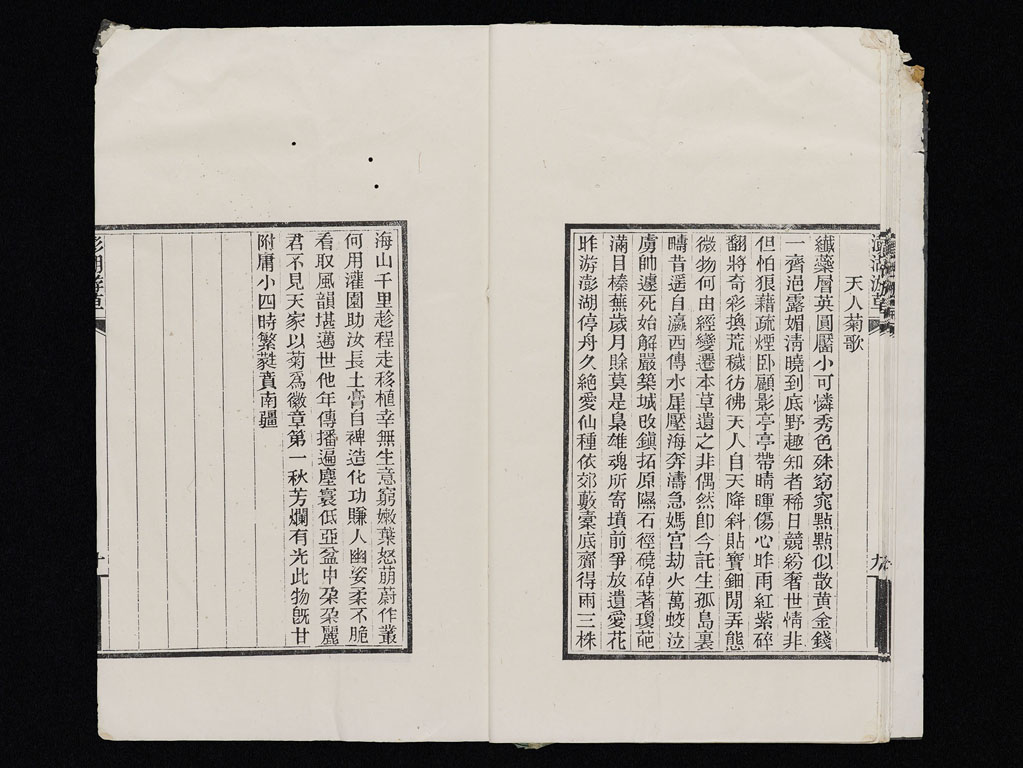 澎湖游草
九
天人菊歌
纎蘂層英圓靨小可憐秀色姝窈窕點點似散黄金錢
一齊浥露媚清曉到底野趣知者稀日競紛奢世情非
但怕狼藉疏煙卧顧影亭亭帶晴暉傷心昨雨紅紫碎
翻將奇彩換荒穢彷彿天人自天降斜貼寶鈿閒弄態
微物何由經變遷本草遺之非偶然卽今託生孤島裏
疇昔遥自瀛西傳水犀壓海奔濤急媽宮劫火萬蛟泣
虜帥遽死始解嚴築城改鎭拓原隰石徑磽碻著瓊葩
滿目榛蕪歲月賒莫是梟雄魂所寄墳前爭放遺愛花
昨游澎湖停舟久絶愛仙種依郊藪橐底齎得雨三株
海山千里趁程走移植幸無生意窮嫩葉怒萠蔚作叢
何用灌園助汝長土膏自裨造化功賺人幽姿柔不脆
看取風韻堪邁世他年傳播遍塵寰低亞盆中朶朶麗
君不見天家以菊爲徽章第一秋芳爛有光此物旣甘
附庸小四時繁蕤賁南疆
澎湖游草
十